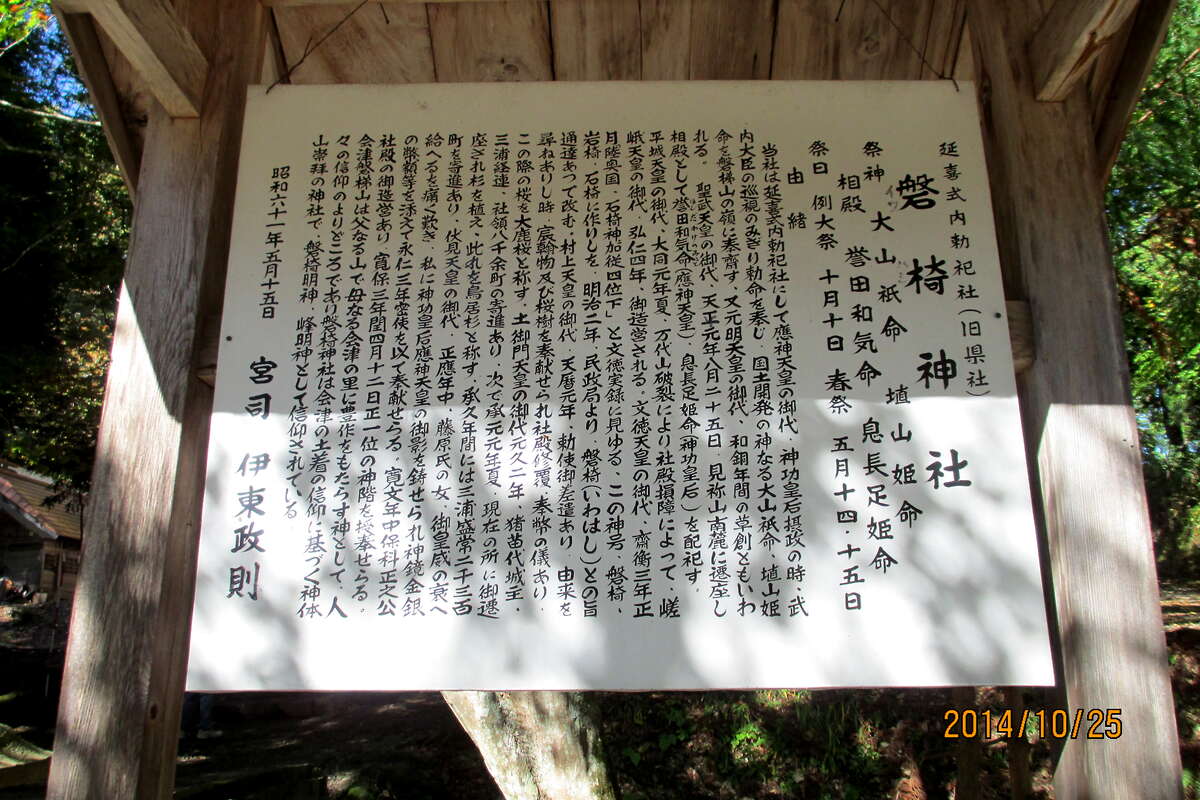 延喜式内勅祀社(旧県社)
磐椅神社
祭神 大山祇命 埴山姫命
相殿 誉田和気命 息長足姫命
祭日 例大祭 十月十日 春祭 五月十四・十五日
由緒
当社は延喜式内勅祀社にして應神天皇の御代、神功皇后摂政の時、武
内大臣の巡視のみぎり勅命を奉じ、国土開発の神なる大山祇命、埴山姫
命を磐梯山の嶺に奉齋す。又元明天皇の御代、和銅年間の草創ともいわ
れる。聖武天皇の御代、天正元年八月二十五日、見祢山南麓に遷座し
相殿として誉田和気命(應神天皇)、息長足姫命(神功皇后)を配祀す。
平城天皇の御代、大同元年夏、万代山破裂により社殿損障によって、嵯
峨天皇の御代、弘仁四年、御造営される。文徳天皇の御代、齋衡三年正
月陸奥国、石椅神加従四位下」と文徳実録に見ゆる。この神号、磐椅、
岩椅、石椅に作りしを、明治二年、民政局より、磐椅(いわはし)との旨
通達あって改む。村上天皇の御代、天暦元年、勅使御差遣あり、由来を
尋ねありし時、宸翰物及び桜樹を奉献せられ社殿修覆、奉幣の儀あり、
この際の桜を大鹿桜と称す。土御門天皇の御代元久二年、猪苗代城主、
三浦経連、社領八千余町の寄進あり、次で承元元年夏、現在の所に御遷
座され杉を植え、此れを鳥居杉と称す。承久年間には三浦盛常二千三百
町を寄進あり、伏見天皇の御代、正應年中、藤原氏の女、御皇威の衰へ
給へるを痛く歎き、私に神功皇后應神天皇の御影を鋳せられ神鏡金銀
の幣類等を添えて永仁三年密使を以て奉献せらる。寛文年中保科正之公
社殿の御造営あり、寛保三年閏四月十二日正一位の神階を授奉せらる。
会津磐梯山は父なる山で母なる会津の里に豊作をもたらす神として、人
々の信仰のよりどころであり磐椅神社は会津の土着の信仰に基づく神体
山崇拝の神社で、磐椅明神、峰明神として信仰されている
昭和六十一年五月十五日
宮司 伊東政則
2014/10/25